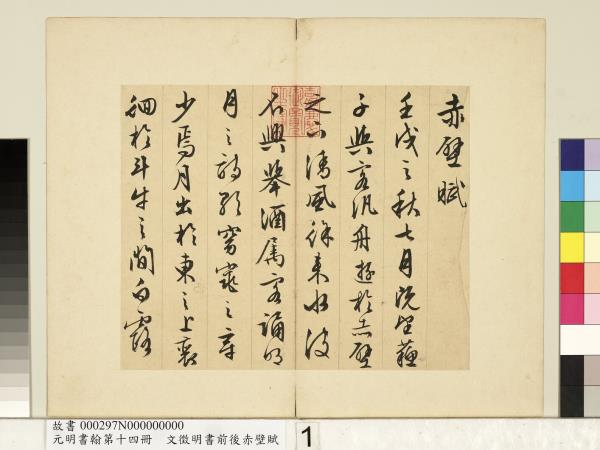 赤壁賦
壬戌之秋七月既望蘇
子與客汎舟遊於赤壁
之下清風徐來水波
不興舉酒属客誦明
月之詩歌窈窕之章
少焉月出於東之上裴
徊於斗牛之間白露
故書 000297N000000000
元明書翰第十四冊 文徵明書前後赤壁賦
1